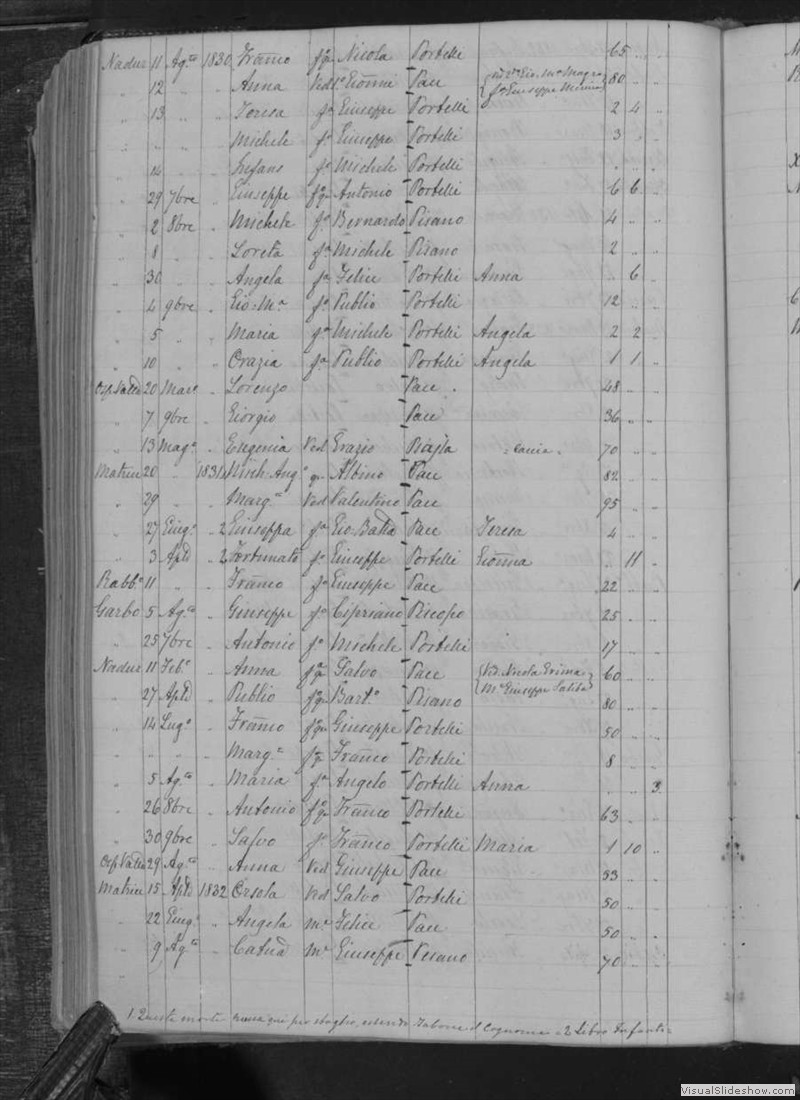 Nadur 11 Ag.to 1830 Franco fqm Nicola Portelli 65 " "
" 12 " " Anna Ved. Pace 80 " "
" 13 " " Teresa fa Giuseppe Portelli 2 4 "
" " " " Michele fo Giuseppe Portelli 3 " "
" 14 " " Infans fo Michele Portelli " " "
" 29 7bre " Giuseppe fqm Antonio Portelli 6 6 "
" 2 8bre " Michele fo Bernardo Pisano 4 " "
" 8 " " Loreta fa Michele Pisano 2 " "
" 30 " " Angela fa Felice Portelli Anna " 6 "
" 4 9bre " Gio: Ma fo Publio Portelli 12 " "
" 5 " " Maria fa Michele Portelli Angela 2 2 "
" 10 " " Orazia fa Publio Portelli Angela 1 1 "
Osp Valla 20 Maro " Lorenzo Pace 48 " "
" 7 9bre " Giorgio Pace 36 " "
" 13 Mago " Eugenia Ved Grazio 70 " "
Matrice 20 " 1831 Mich: Ango qm Albino Pace 82 " "
" 29 " " Marga Ved Valentino Pace 95 " "
" 27 Giugo " 2 Giuseppa fa Gio Batta Pace Teresa 4 " "
" 3 Aple " 2 Fortunato fo Giuseppe Portelli Gionna " 11 "
Rabbo 11 " " Franco fo Giuseppe Pace 22 " "
Garbo 5 Ag.to " Giuseppe fo Cipriano Piscopo 25 " "
" 25 7bre " Antonio fo Michele Portelli 17 " "
Nadur 11 Febo " Anna fqm Salvo Pace {Ved. Nicola 60 " "
Mo Giuseppe Saliba}
" 27 Aple " Publio fqm Barto Pisano 80 " "
" 14 Lugo " Franco fqm Giuseppe Portelli 50 " "
" " " " Marga fqm Franco Portelli 8 " "
" 5 Ag.to " Maria fa Angelo Portelli Anna " " 3
" 26 8bre " Antonio fqm Franco Portelli 63 " "
" 30 9bre " Salvo fo Franco Portelli Maria 1 10 "
Osp Valla 29 Ag.to " Anna Ved Giuseppe Pace 33 " "
Matrice 15 Aple 1832 Orsola Ved Salvo Portelli 50 " "
" 22 Giugo " Angela me Felice Pace 50 " "
" 9 Ag.to " Catna me Giuseppe Pisano 70 " "
1 Queste morti qui per sbaglio, essendo il Cognome = 2 Libro Infanti =
VisualSlideshow.com